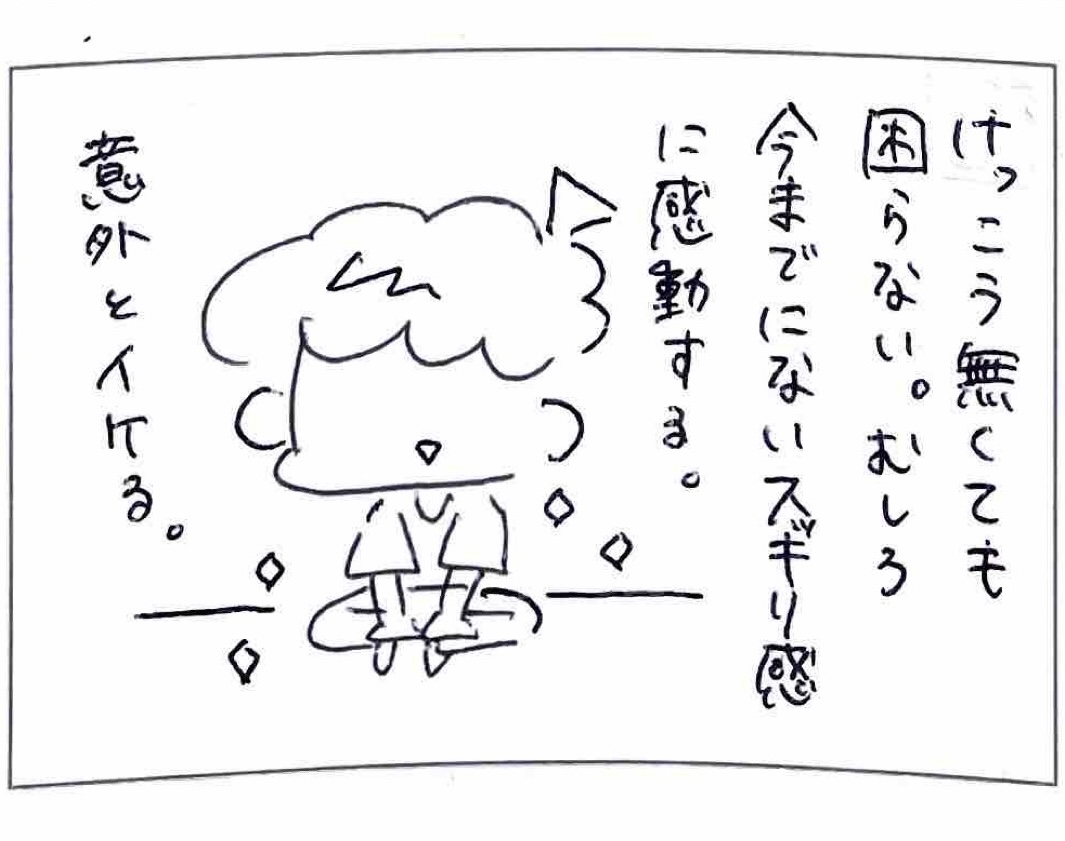 けっこう無くても
困らない。むしろ
今までにないスッキリ感
に感動する。
意外とイケる。